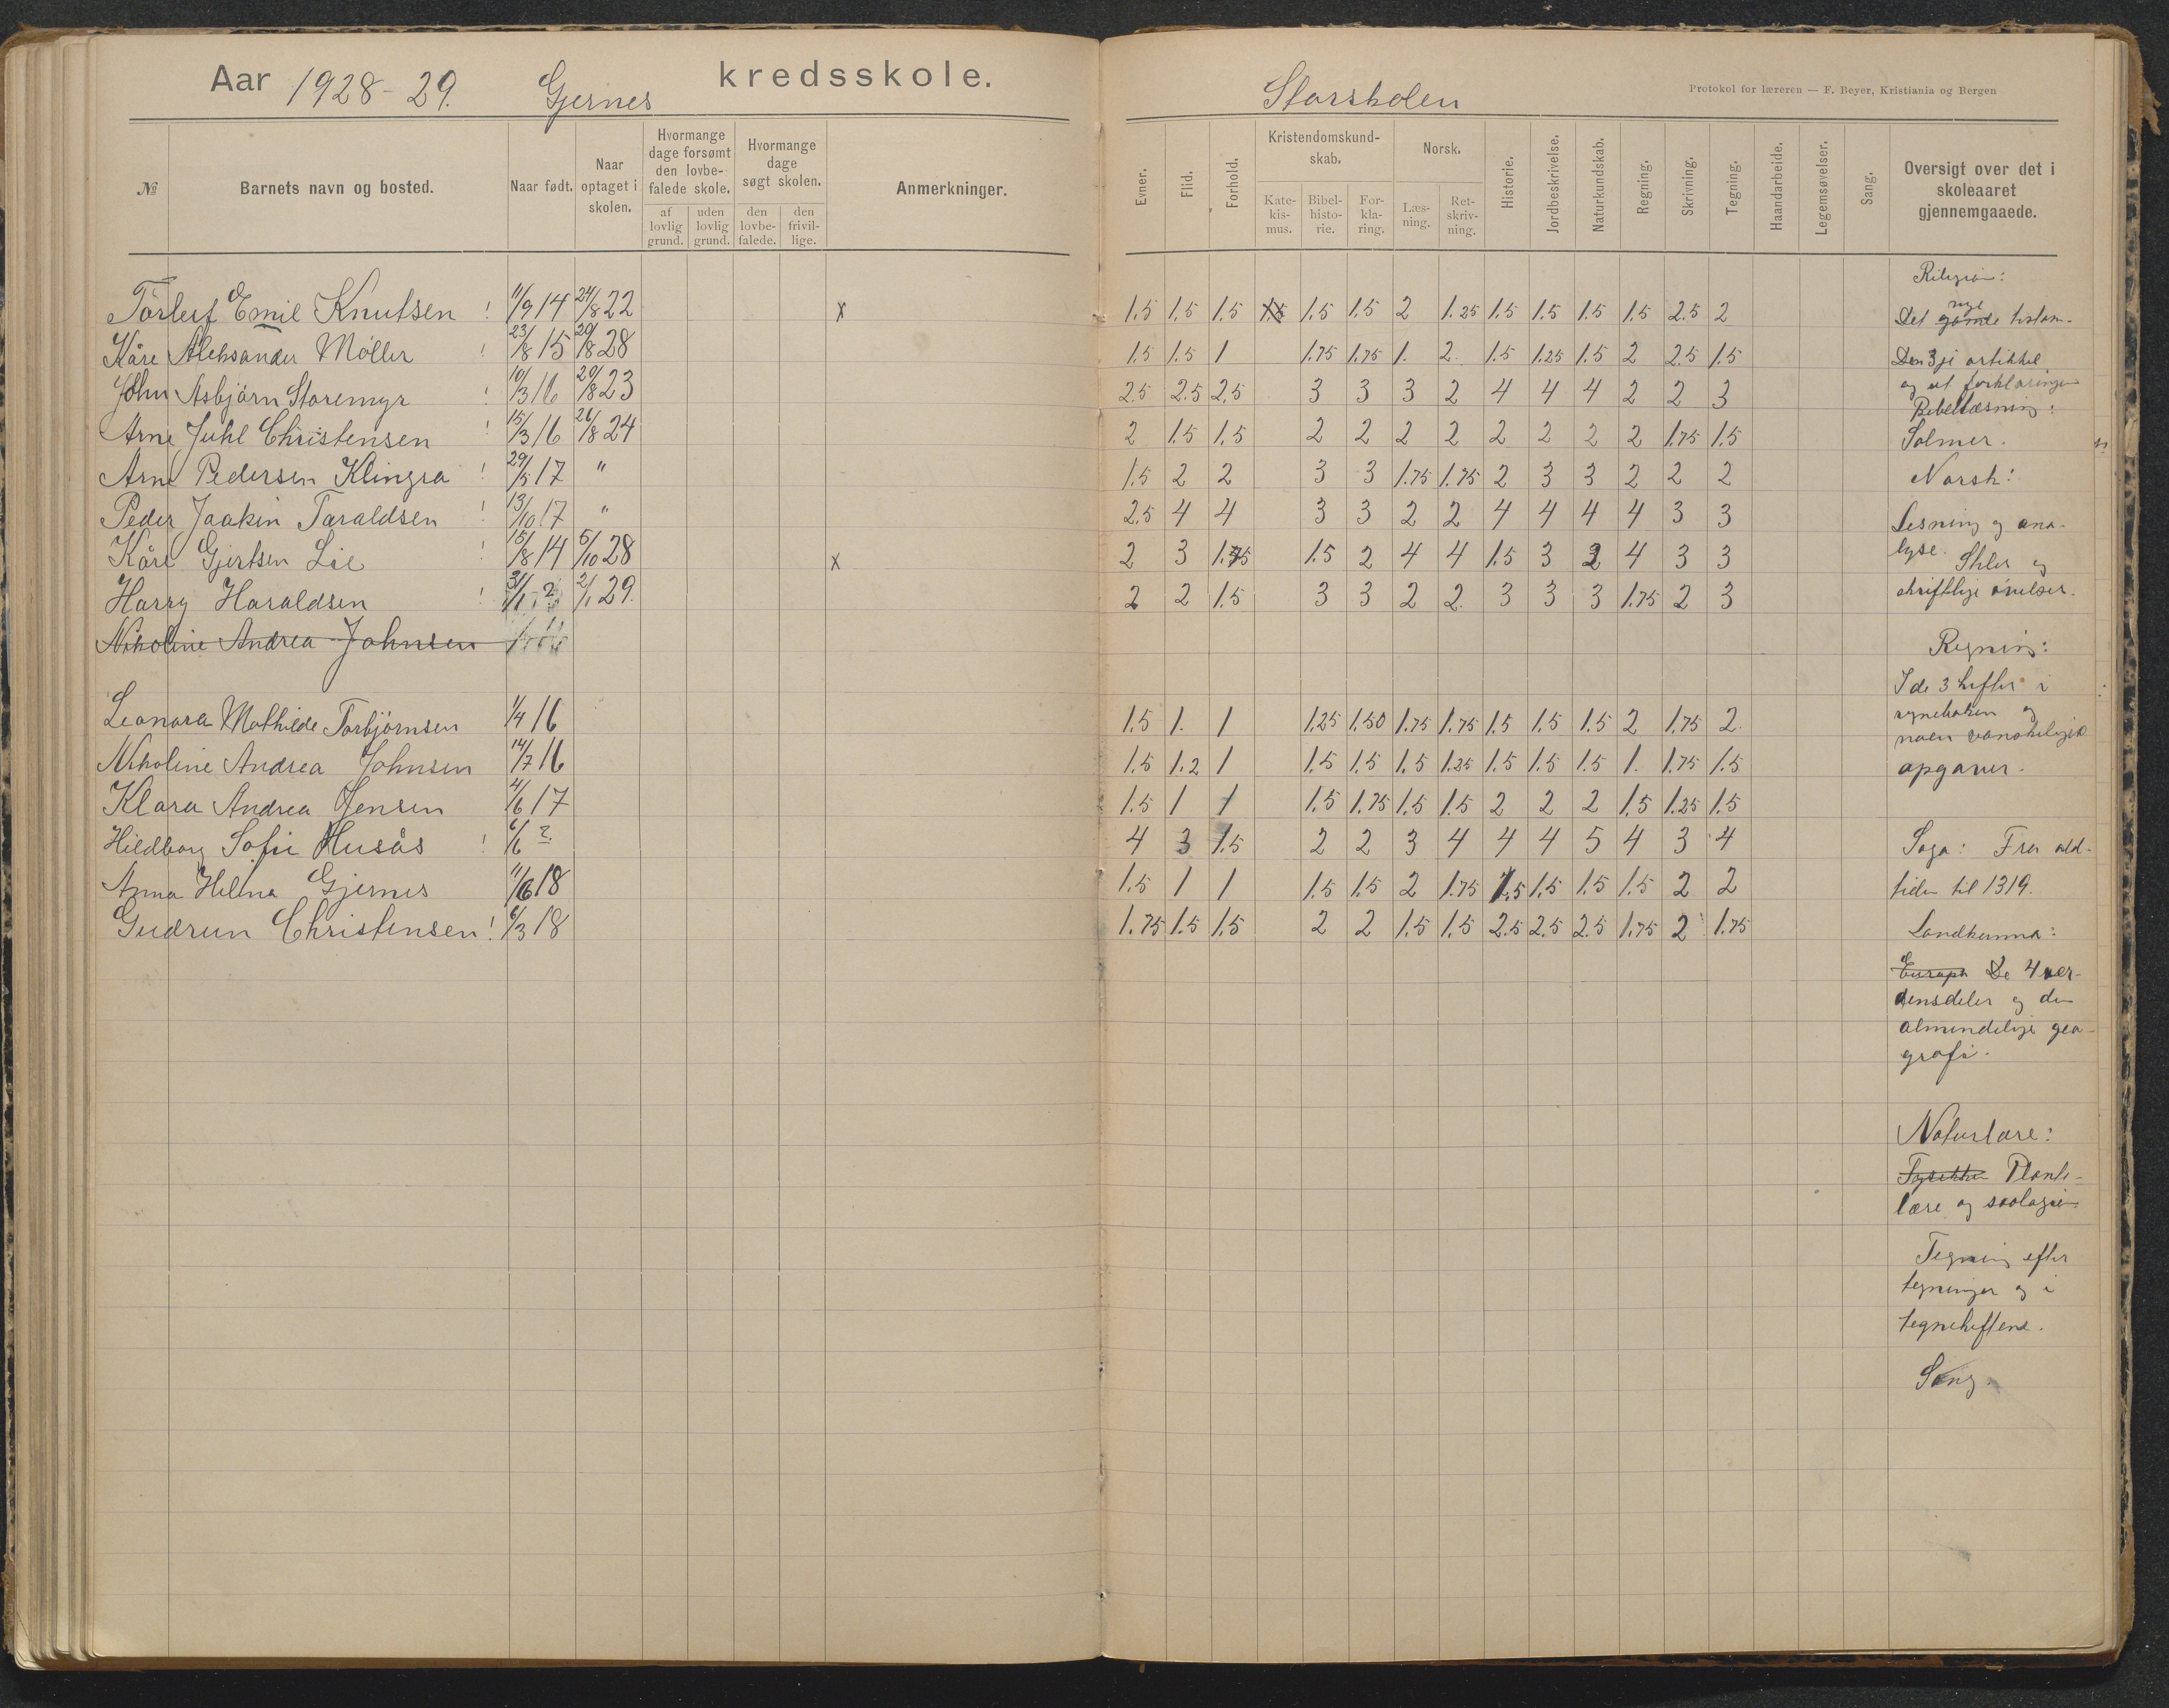 Aar 1928-29. Gjernes kredsskole.
Storskolen
Protokol for læreren — F. Beyer, Kristiania og Bergen
№ Barnets navn og bosted. Naar født. Naar optaget i skolen. Hvormange dage forsømt den lovbefalede skole. af lovlig grund. uden lovlig grund. Hvormange dage søgt skolen. den lovbefalede. den frivillige. Anmerkninger.
Evner. Flid. Forhold. Kristendomskundskab. Katekismus. Bibelhistorie. Forklaring. Norsk. Læsning. Retskrivning. Historie. Jordbeskrivelse. Naturkundskab. Regning. Skrivning. Tegning. Haandarbeide. Legemsøvelser. Sang. Oversigt over det i skoleaaret gjennemgaaede.
Torleif Emil Knutsen ! 11/9 14 24/8 22 x 1.5 1.5 1.5 1.5 1.5 1.5 2 1.25 1.5 1.5 1.5 1.5 2.5 2
Kåre Aleksander Möller ! 23/8 15 20/8 28 1.5 1.5 1 1.75 1.75 1. 2. 1.5 1.25 1.5 2 2.5 1.5
John Asbjörn Staremyr ! 10/3 16 20/8 23 2.5 2.5 2.5 3 3 3 2 4 4 4 2 2 3
Arne Juhl Christensen ! 15/3 16 26/8 24 2 1.5 1.5 2 2 2 2 2 2 2 2 1.75 1.5
Arne Pedersen Klingra ! 29/5 17 " 1.5 2 2 3 3 1.75 1.75 2 3 3 2 2 2
Peder Joakin Taraldsen ! 13/10 17 " 2.5 4 4 3 3 2 2 4 4 4 4 3 3
Kåre Gjertsen Lie ! 15/8 14 5/10 28 x 2 3 1.75 1.5 2 4 4 1.5 3 2 4 3 3
Harry Haraldsen ! 31/1 ? 2/1 29. 2 2 1.5 3 3 2 2. 3 3 3 1.75 2 3
Nikoline Andrea Johnsen
Leonora Mathilde Torbjörnsen 1/4 16 1.5 1. 1 1.25 1.50 1.75 1.75 1.5 1.5 1.5 2 1.75 2.
Nikoline Andrea Johnsen 14/7 16 1.5 1.2 1 1.5 1.5 1.5 1.25 1.5 1.5 1.5 1. 1.75 1.5
Klara Andrea Jensen 4/6 17 1.5 1 1 1.5 1.75 1.5 1.5 2 2 2 1.5 1.25 1.5
Hildborg Sofie Husås ! 6/6 ? 4 3 1.5 2 2 3 4 4 4 5 4 3 4
Anna Helena Gjernes 11/6 18 1.5 1 1 1.5 1.5 2 1.75 1.5 1.5 1.5 1.5 2 2
Gudrun Christensen ! 6/3 18 1.75 1.5 1.5 2 2 1.5 1.5 2.5 2.5 2.5 1.75 2 1.75
Religion:
nye
Det gamle testam-
Den 3je artikkel
og ut forklaringen
Bibellæsning:
Salmer.
Norsk:
Lesning og ana-
lyse. Stiler og
skriftlige övelser.
Regning:
I de 3 hefter i
regneboken og
noen vanskelige
opgaver.
Soga: Fra old-
tiden til 1319.
Landkunna:
Europa De 4 ver-
densdeler og den
almindelige geo-
grafi.
Naturlære:
Fysikken Plante-
lære og soologien.
Tegning efter
tegninger og i
tegneheftene.
Sang.